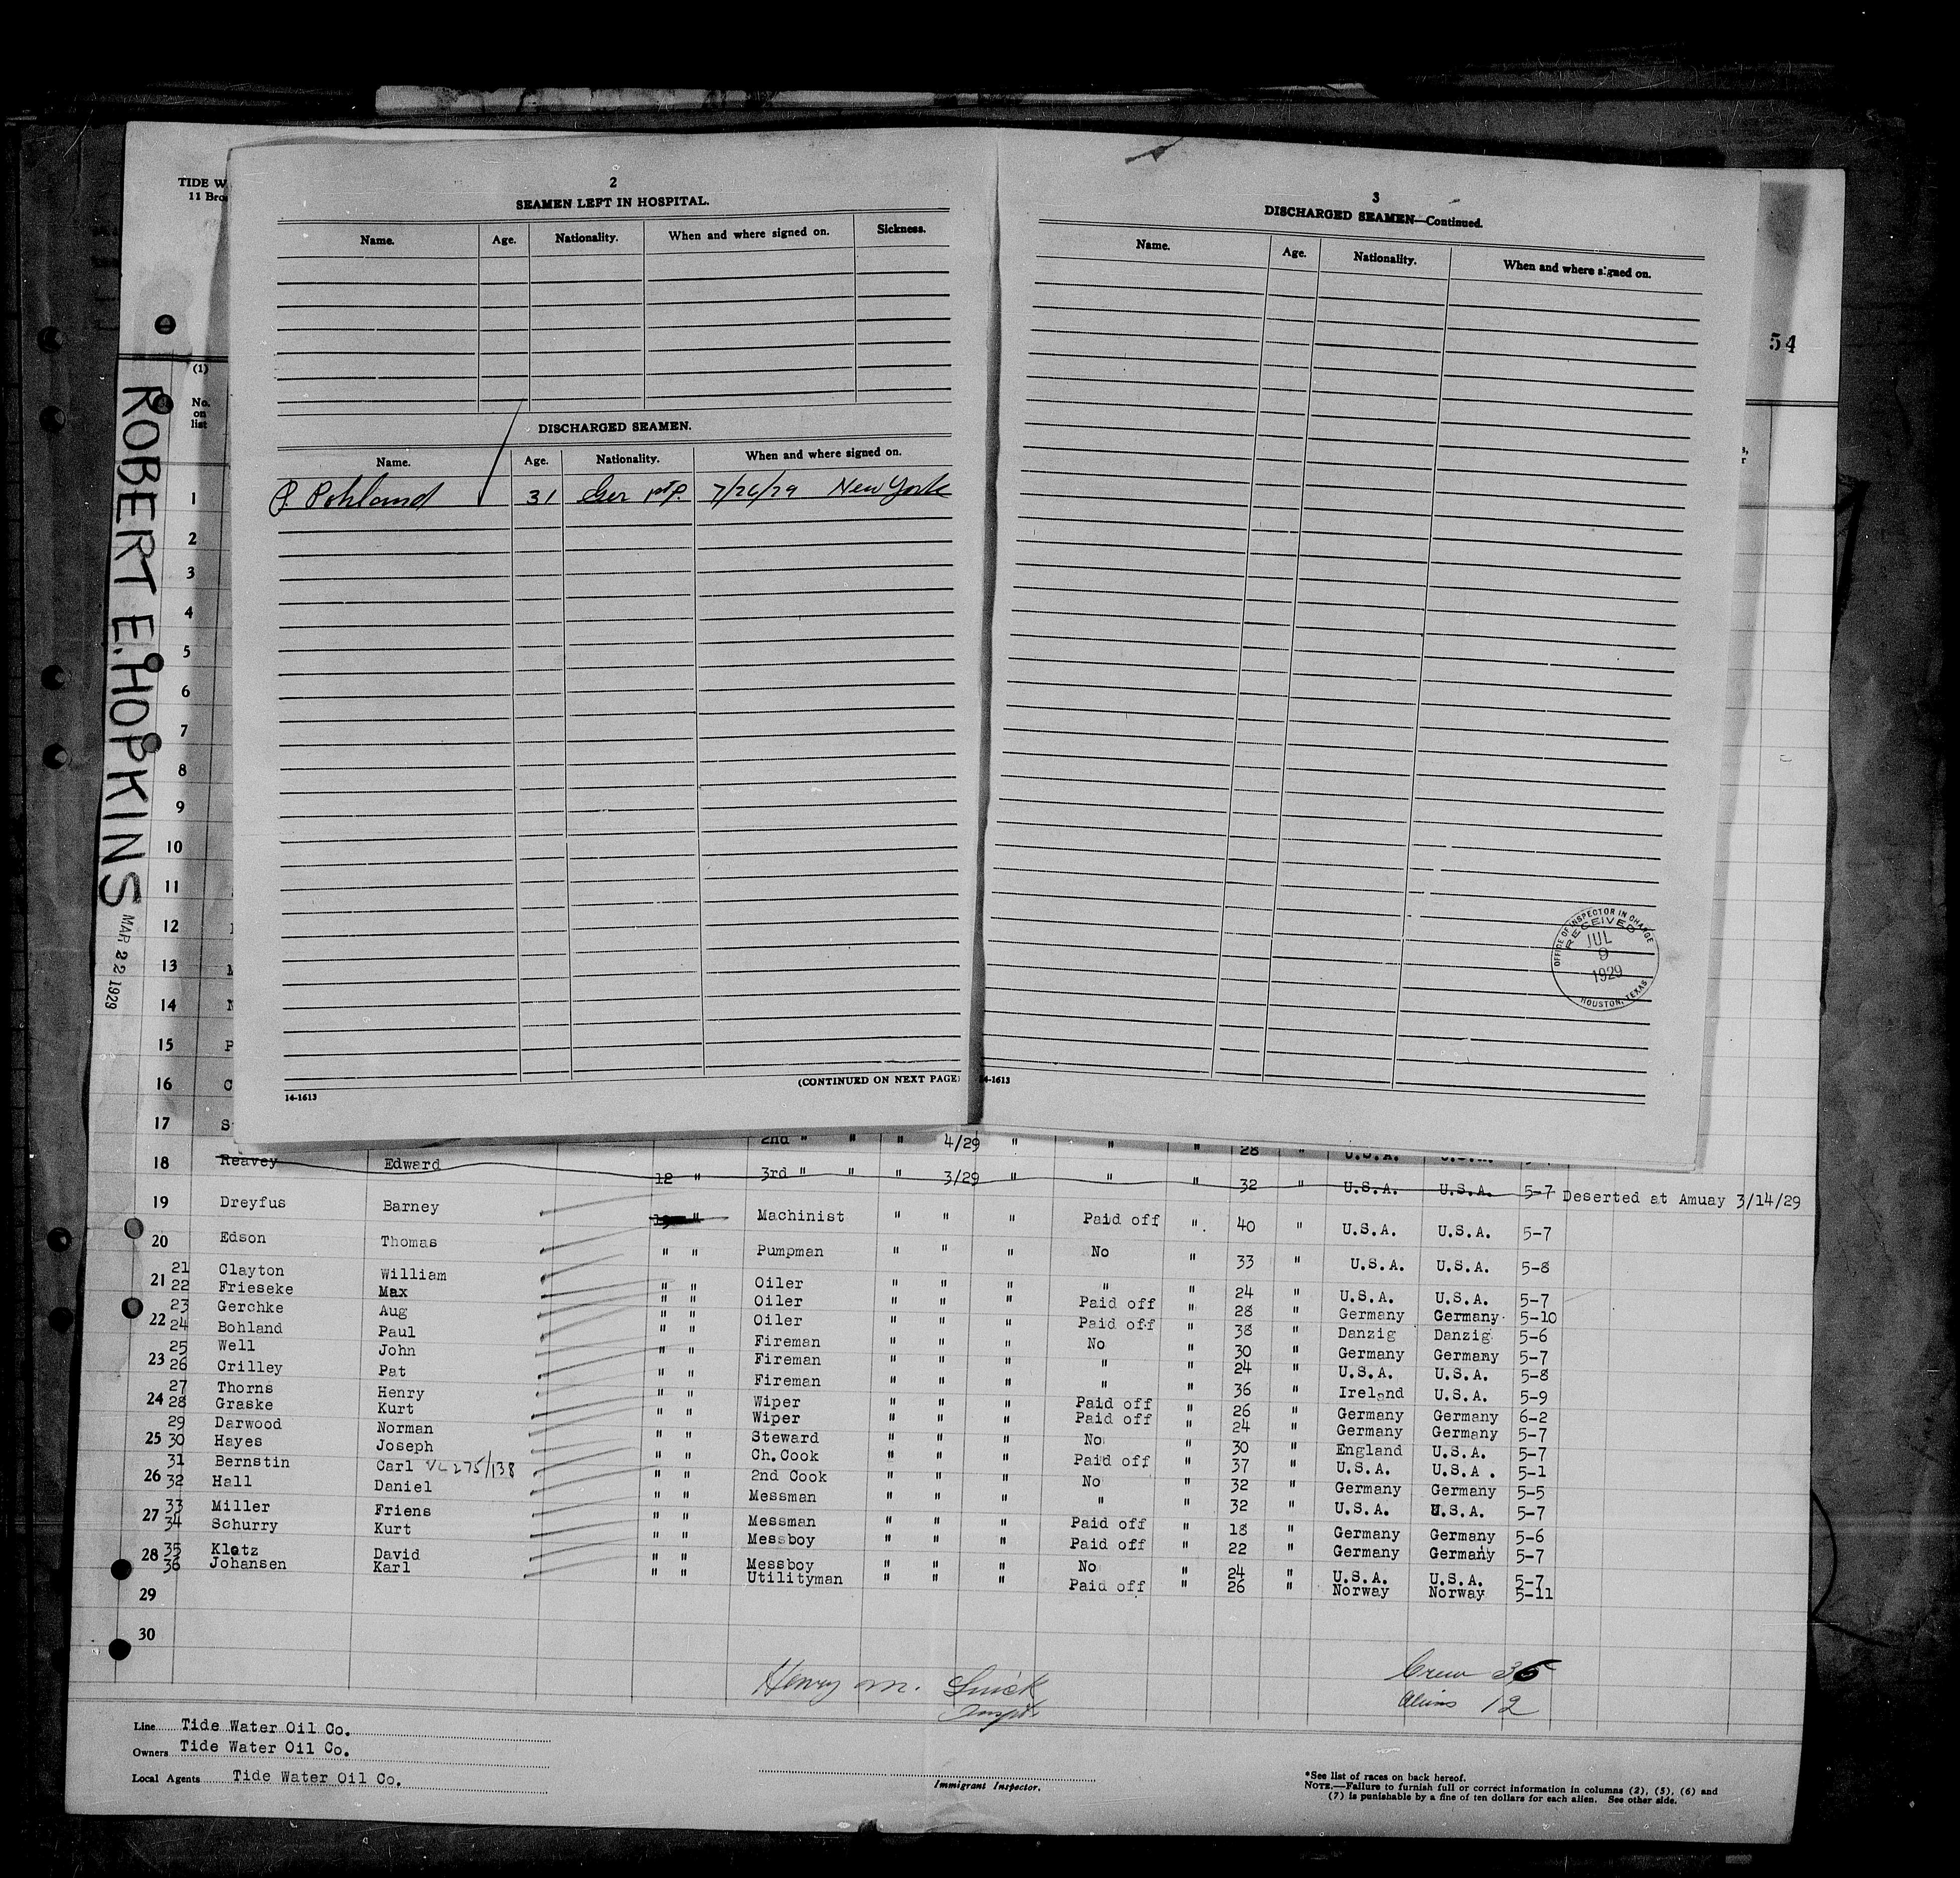 TIDE W
11 Bro
(1)
No.
on
list
54
ROBERT E. HOPKINS
MAR 22 1929
2
SEAMEN LEFT IN HOSPITAL.
Name. Age. Nationality. When and where signed on. Sickness.
DISCHARGED SEAMEN.
Name. Age. Nationality. When and where signed on.
P. Pohland 31 Ger 7/26/29 New York
(CONTINUED ON NEXT PAGE)
14-1613
3
DISCHARGED SEAMEN—Continued.
Name. Age. Nationality. When and where signed on.
OFFICE OF INSPECTOR IN CHARGE
RECEIVED
JUL
9
1929
HOUSTON, TEXAS
14-1613
1
2
3
4
5
6
7
8
9
10
11
12
13
14
15 P
16 C
17 S 2nd " " " 4/29 " " " 28 " U.S.A. U.S.A.
18 Reavey Edward 12 " 3rd " " " 3/29 " " " 32 " U.S.A. U.S.A. 5-7 Deserted at Amuay 3/14/29
19 Dreyfus Barney " Machinist " " " Paid off " 40 " U.S.A. U.S.A. 5-7
20 Edson Thomas " " Pumpman " " " No " 33 " U.S.A. U.S.A. 5-8
21 Clayton William " " Oiler " " " " " 24 " U.S.A. U.S.A. 5-7
21 22 Frieseke Max " " Oiler " " " Paid off " 28 " Germany Germany 5-10
23 Gerchke Aug " " Oiler " " " Paid off " 38 " Danzig Danzig 5-6
22 24 Bohland Paul " " Fireman " " " No " 30 " Germany Germany 5-7
25 Well John " " Fireman " " " " " 24 " U.S.A. U.S.A. 5-8
23 26 Crilley Pat " " Fireman " " " " " 36 " Ireland U.S.A. 5-9
27 Thorns Henry " " Wiper " " " Paid off " 26 " Germany Germany 6-2
24 28 Graske Kurt " " Wiper " " " Paid off " 24 " Germany Germany 5-7
29 Darwood Norman " " Steward " " " No " 30 " England U.S.A. 5-7
25 30 Hayes Joseph " " Ch.Cook " " " Paid off " 37 " U.S.A. U.S.A. 5-1
31 Bernstin Carl VL 275/138 " " 2nd Cook " " " No " 32 " Germany Germany 5-5
26 32 Hall Daniel " " Messman " " " " " 32 " U.S.A. U.S.A. 5-7
27 33 Miller Friens " " Messman " " " Paid off " 18 " Germany Germany 5-6
34 Schurry Kurt " " Messboy " " " Paid off " 22 " Germany Germany 5-7
28 35 Klotz David " " Messboy " " " No " 24 " U.S.A. U.S.A. 5-7
36 Johansen Karl " " Utilityman " " " Paid off " 26 " Norway Norway 5-11
29
30
Henry M.
Crew 35
Aliens 12
Line Tide Water Oil Co.
Owners Tide Water Oil Co.
Local Agents Tide Water Oil Co.
Immigrant Inspector.
*See list of races on back hereof.
NOTE.—Failure to furnish full or correct information in columns (2), (5), (6) and
(7) is punishable by a fine of ten dollars for each alien. See other side.